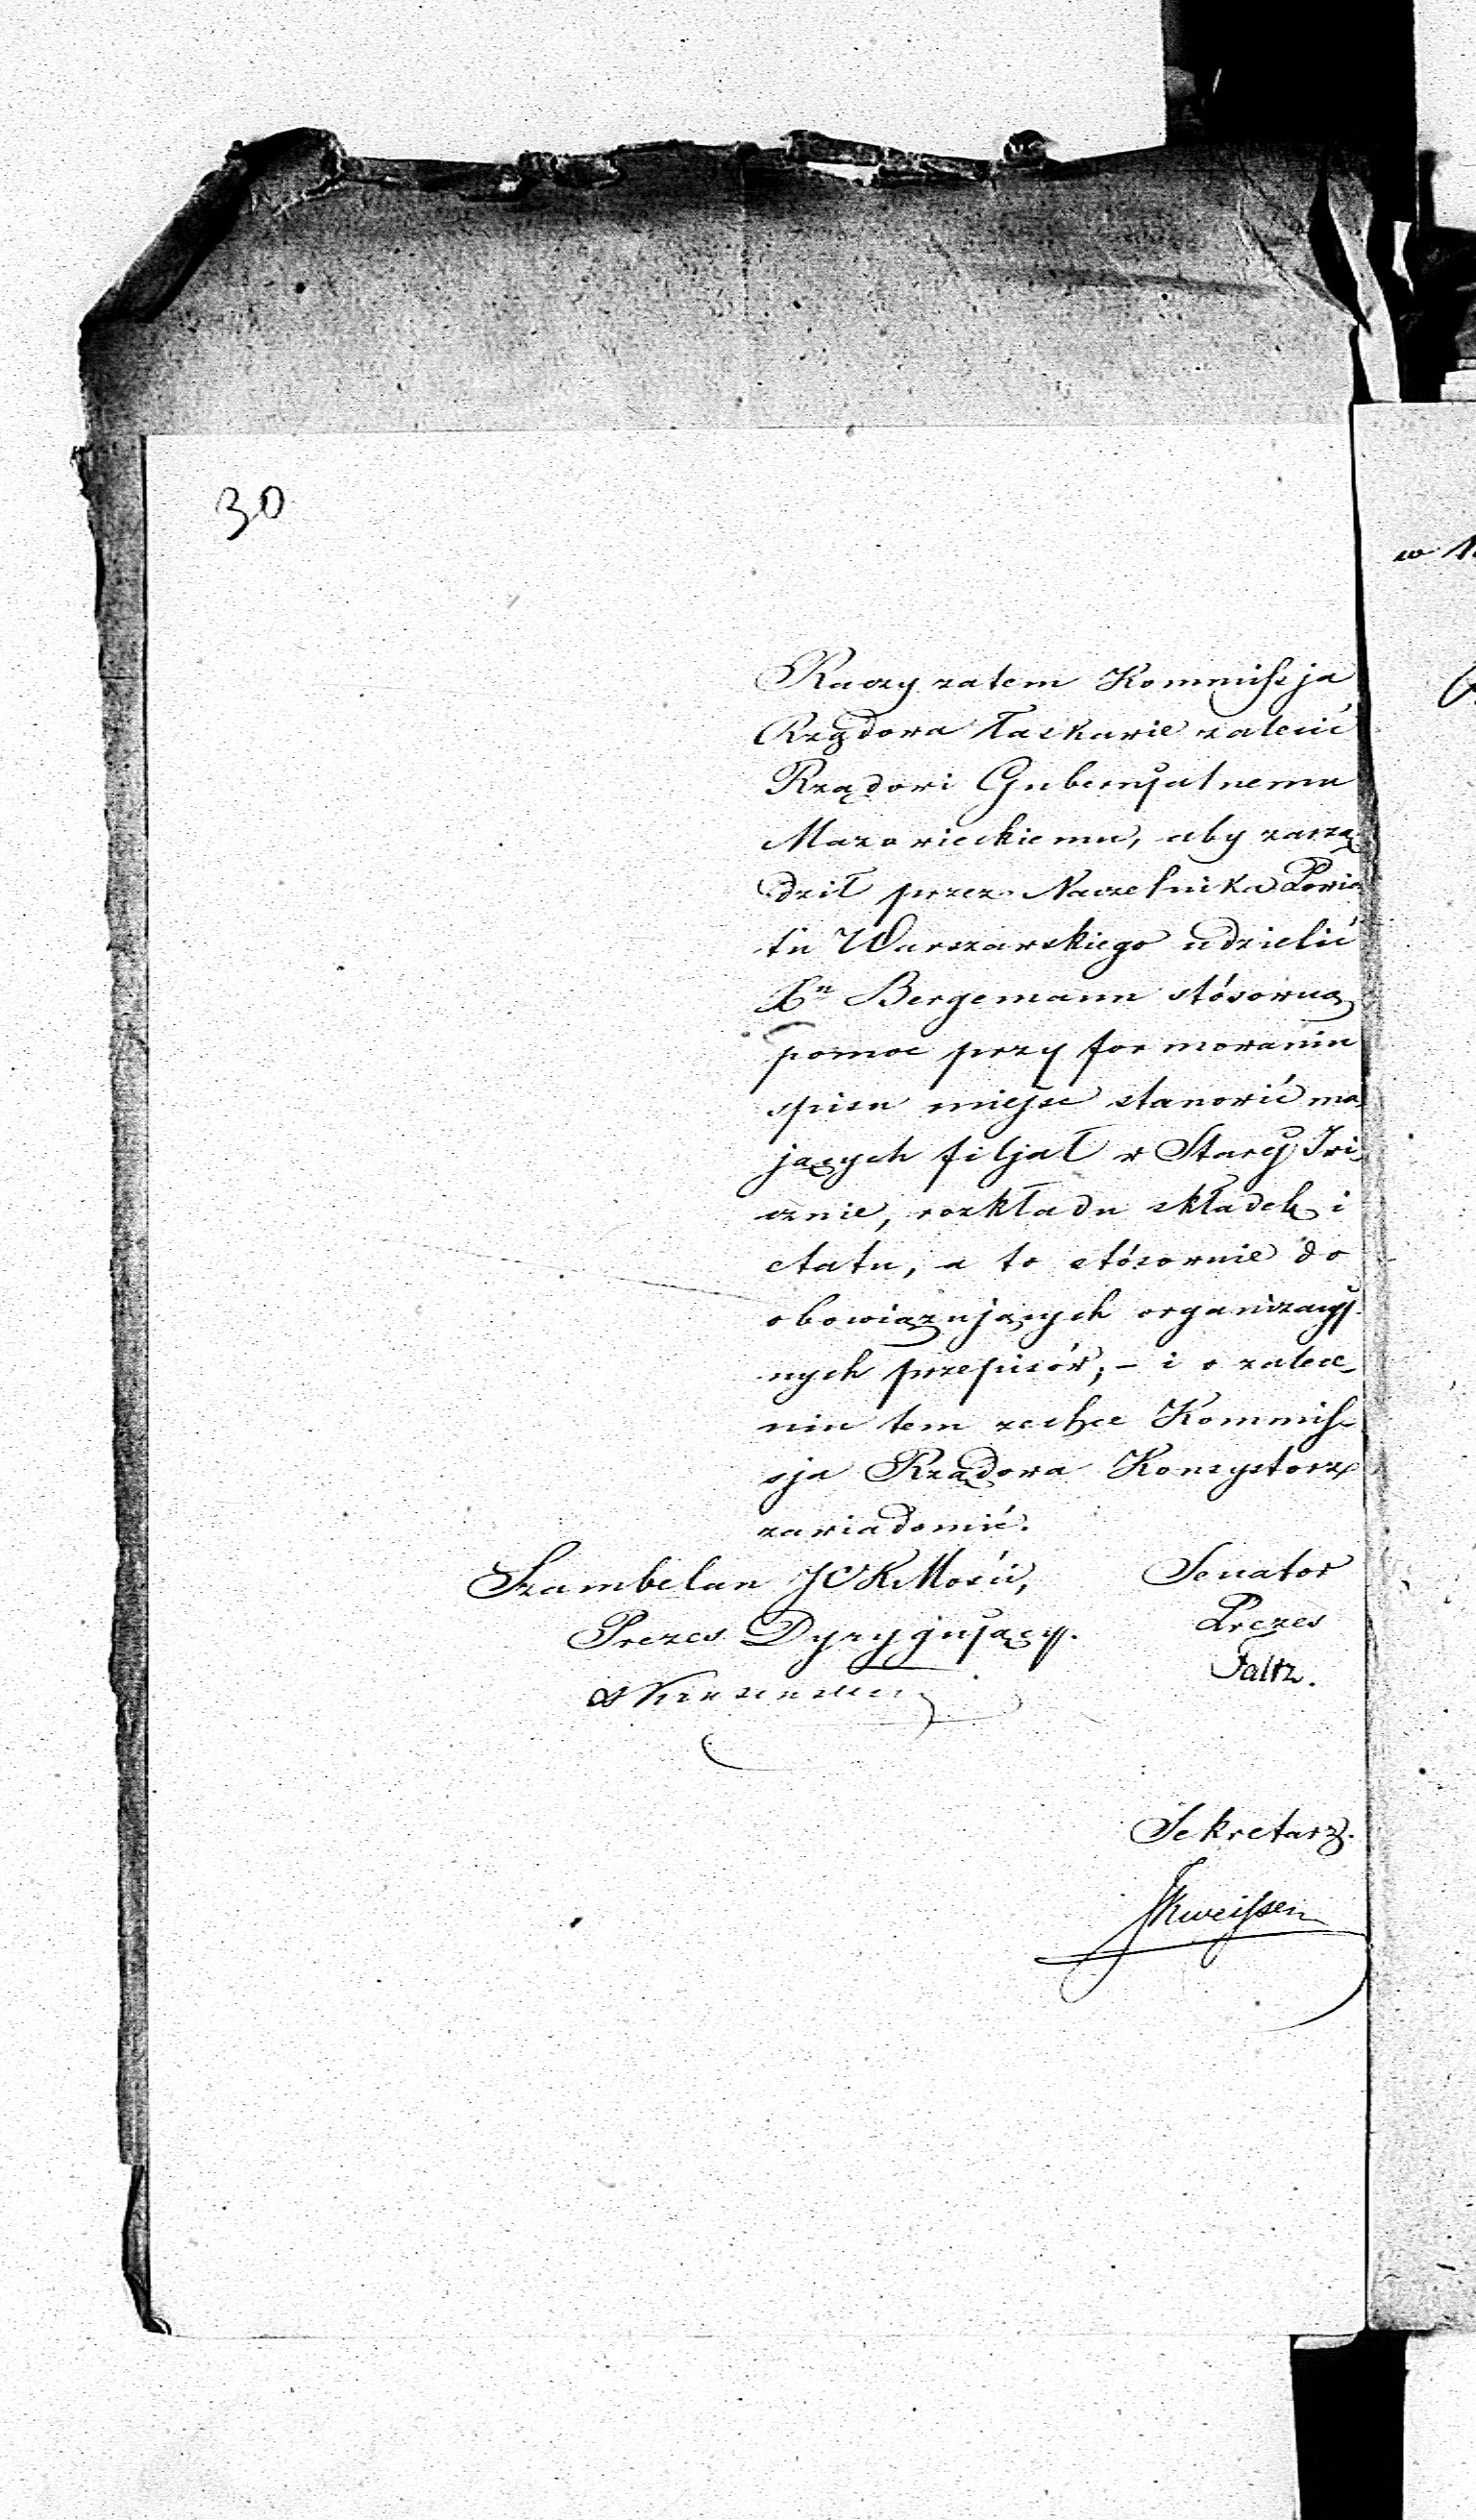 30
Raczy zatem Kommissja
Rządowa łaskawie zalecić
Rządowi Gubernjalnemu
Mazowieckiemu, aby zarzą-
dził przez Naczelnika Powia-
tu Warszawskiego udzielić
Xu Bergemann stósowną
pomoc przy formowaniu
spisu miejsc stanowić ma-
jących filjał w Starej Iwi-
cznie, rozkładu składek i
etatu, a to stósownie do
obowiązujących organizacyj-
nych przepisów; – i o zalece-
niu tem zechce Kommis-
sja Rządowa Konsystorz
zawiadomić.
Szambelan JCKMości, Senator
Prezes Dyrygujący. Prezes
Faltz.
Sekretarz.
w